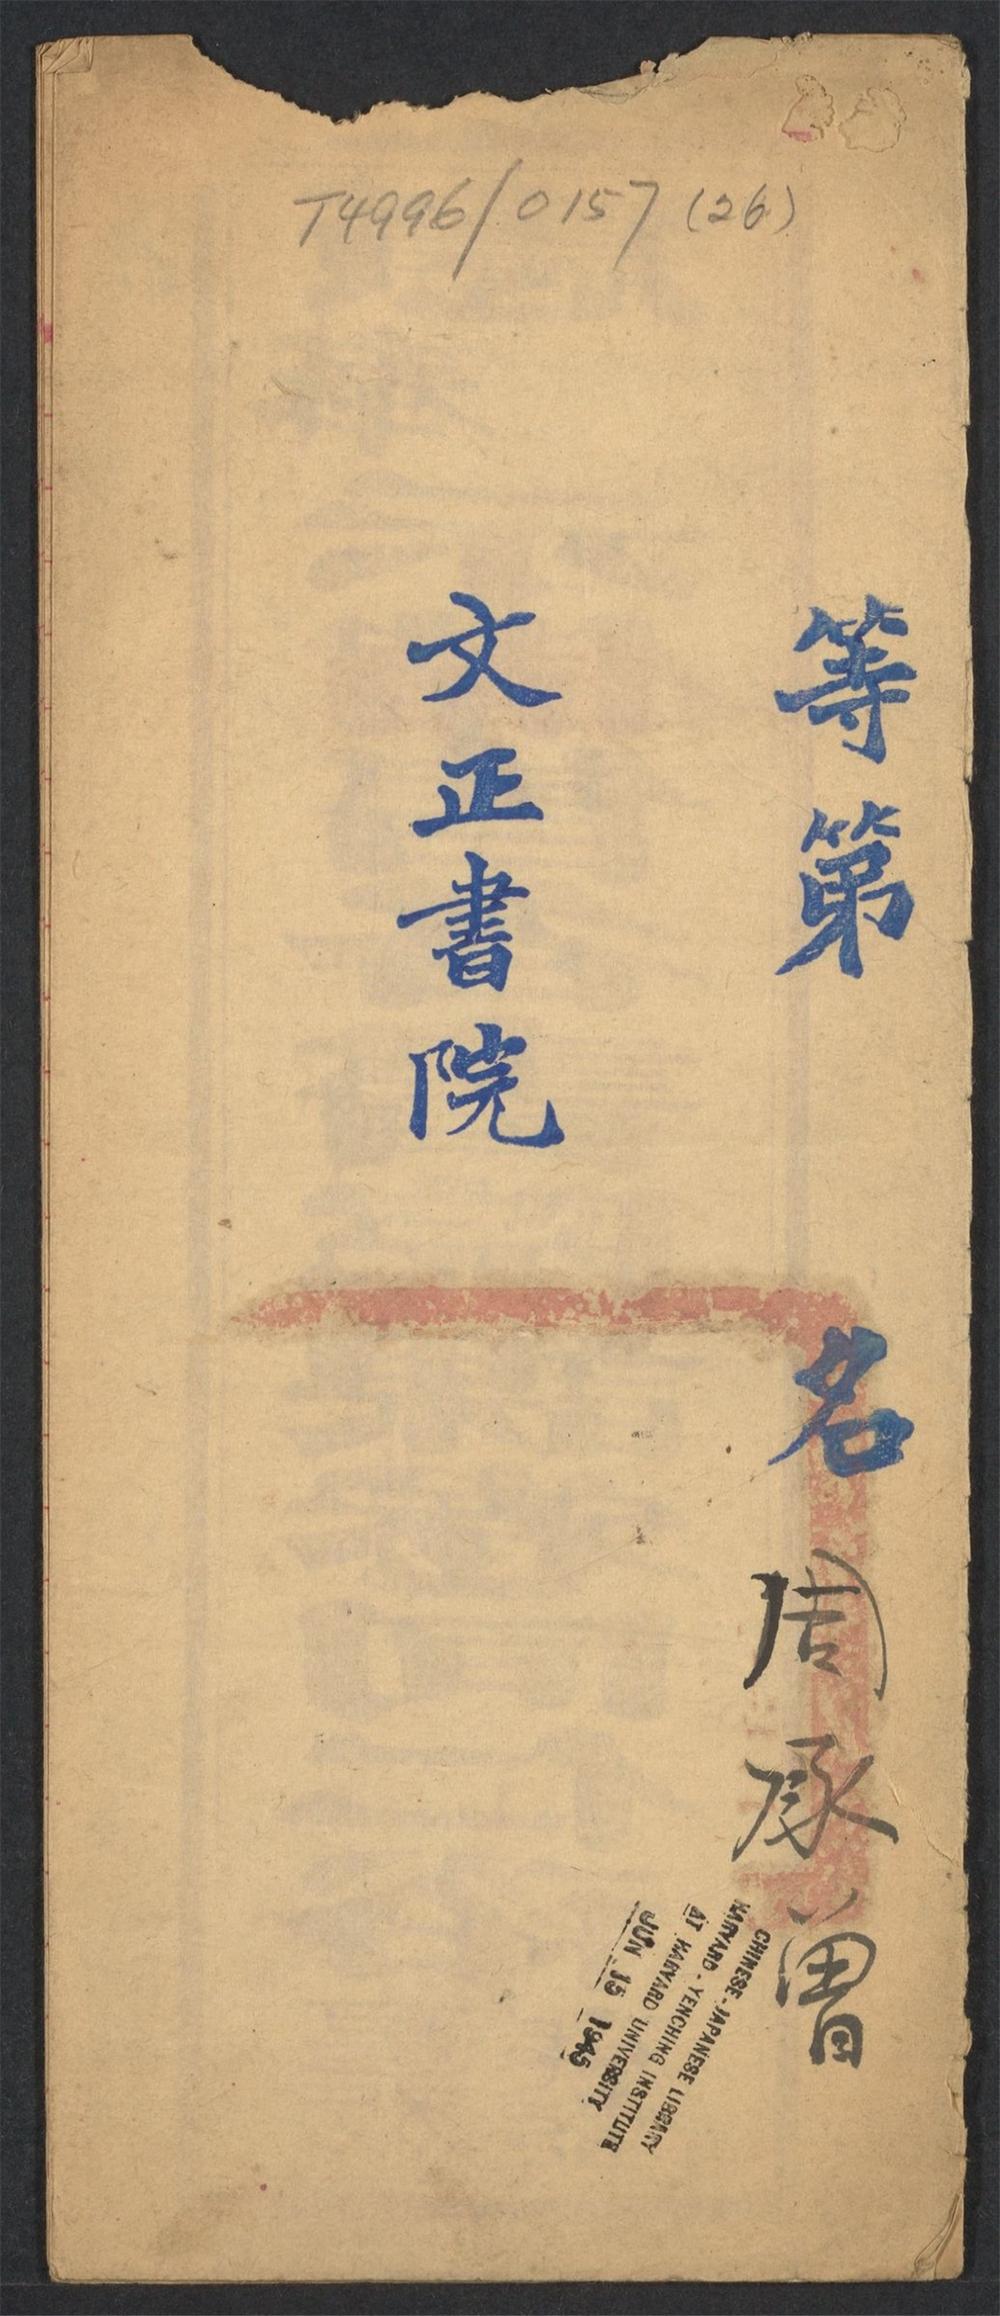 T4996/0157 (26)
等第 名 周承曾
文正書院
CHINESE-JAPANESE LIBRARY
HARVARD-YENCHING INSTITUTE
AT HARVARD UNIVERSITY
JUN 15 1945